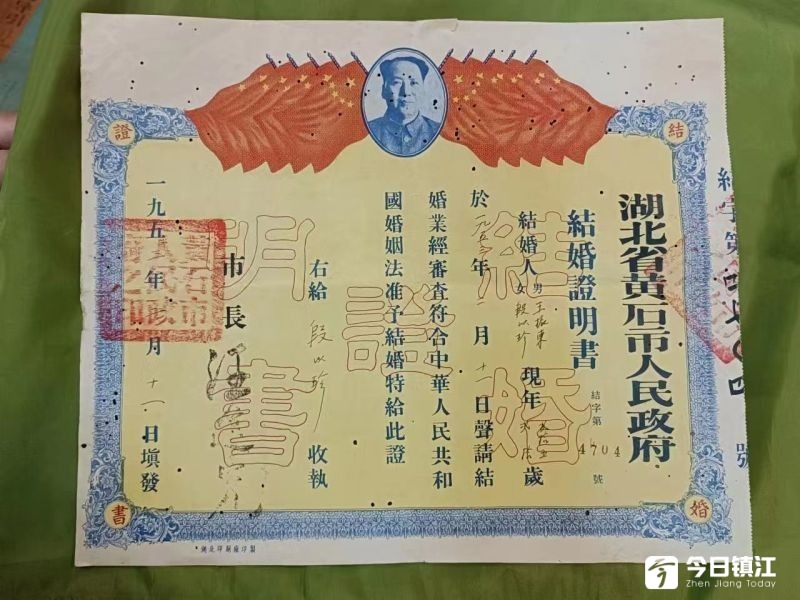 湖北省黄石市人民政府
結婚證明書
結字第 4704 號
結婚人 男 王振東 女 段以珍 現年 歲
於一九五 年 月十一日聲請結
婚業經審查符合中華人民共和
國婚姻法准予結婚特給此證
右給 段以珍 收執
市長
一九五 年 月十一日填發
結
婚
證
書
結婚
證
明書
號
湖北印刷廠印製
今日镇江
Zhen Jiang Today